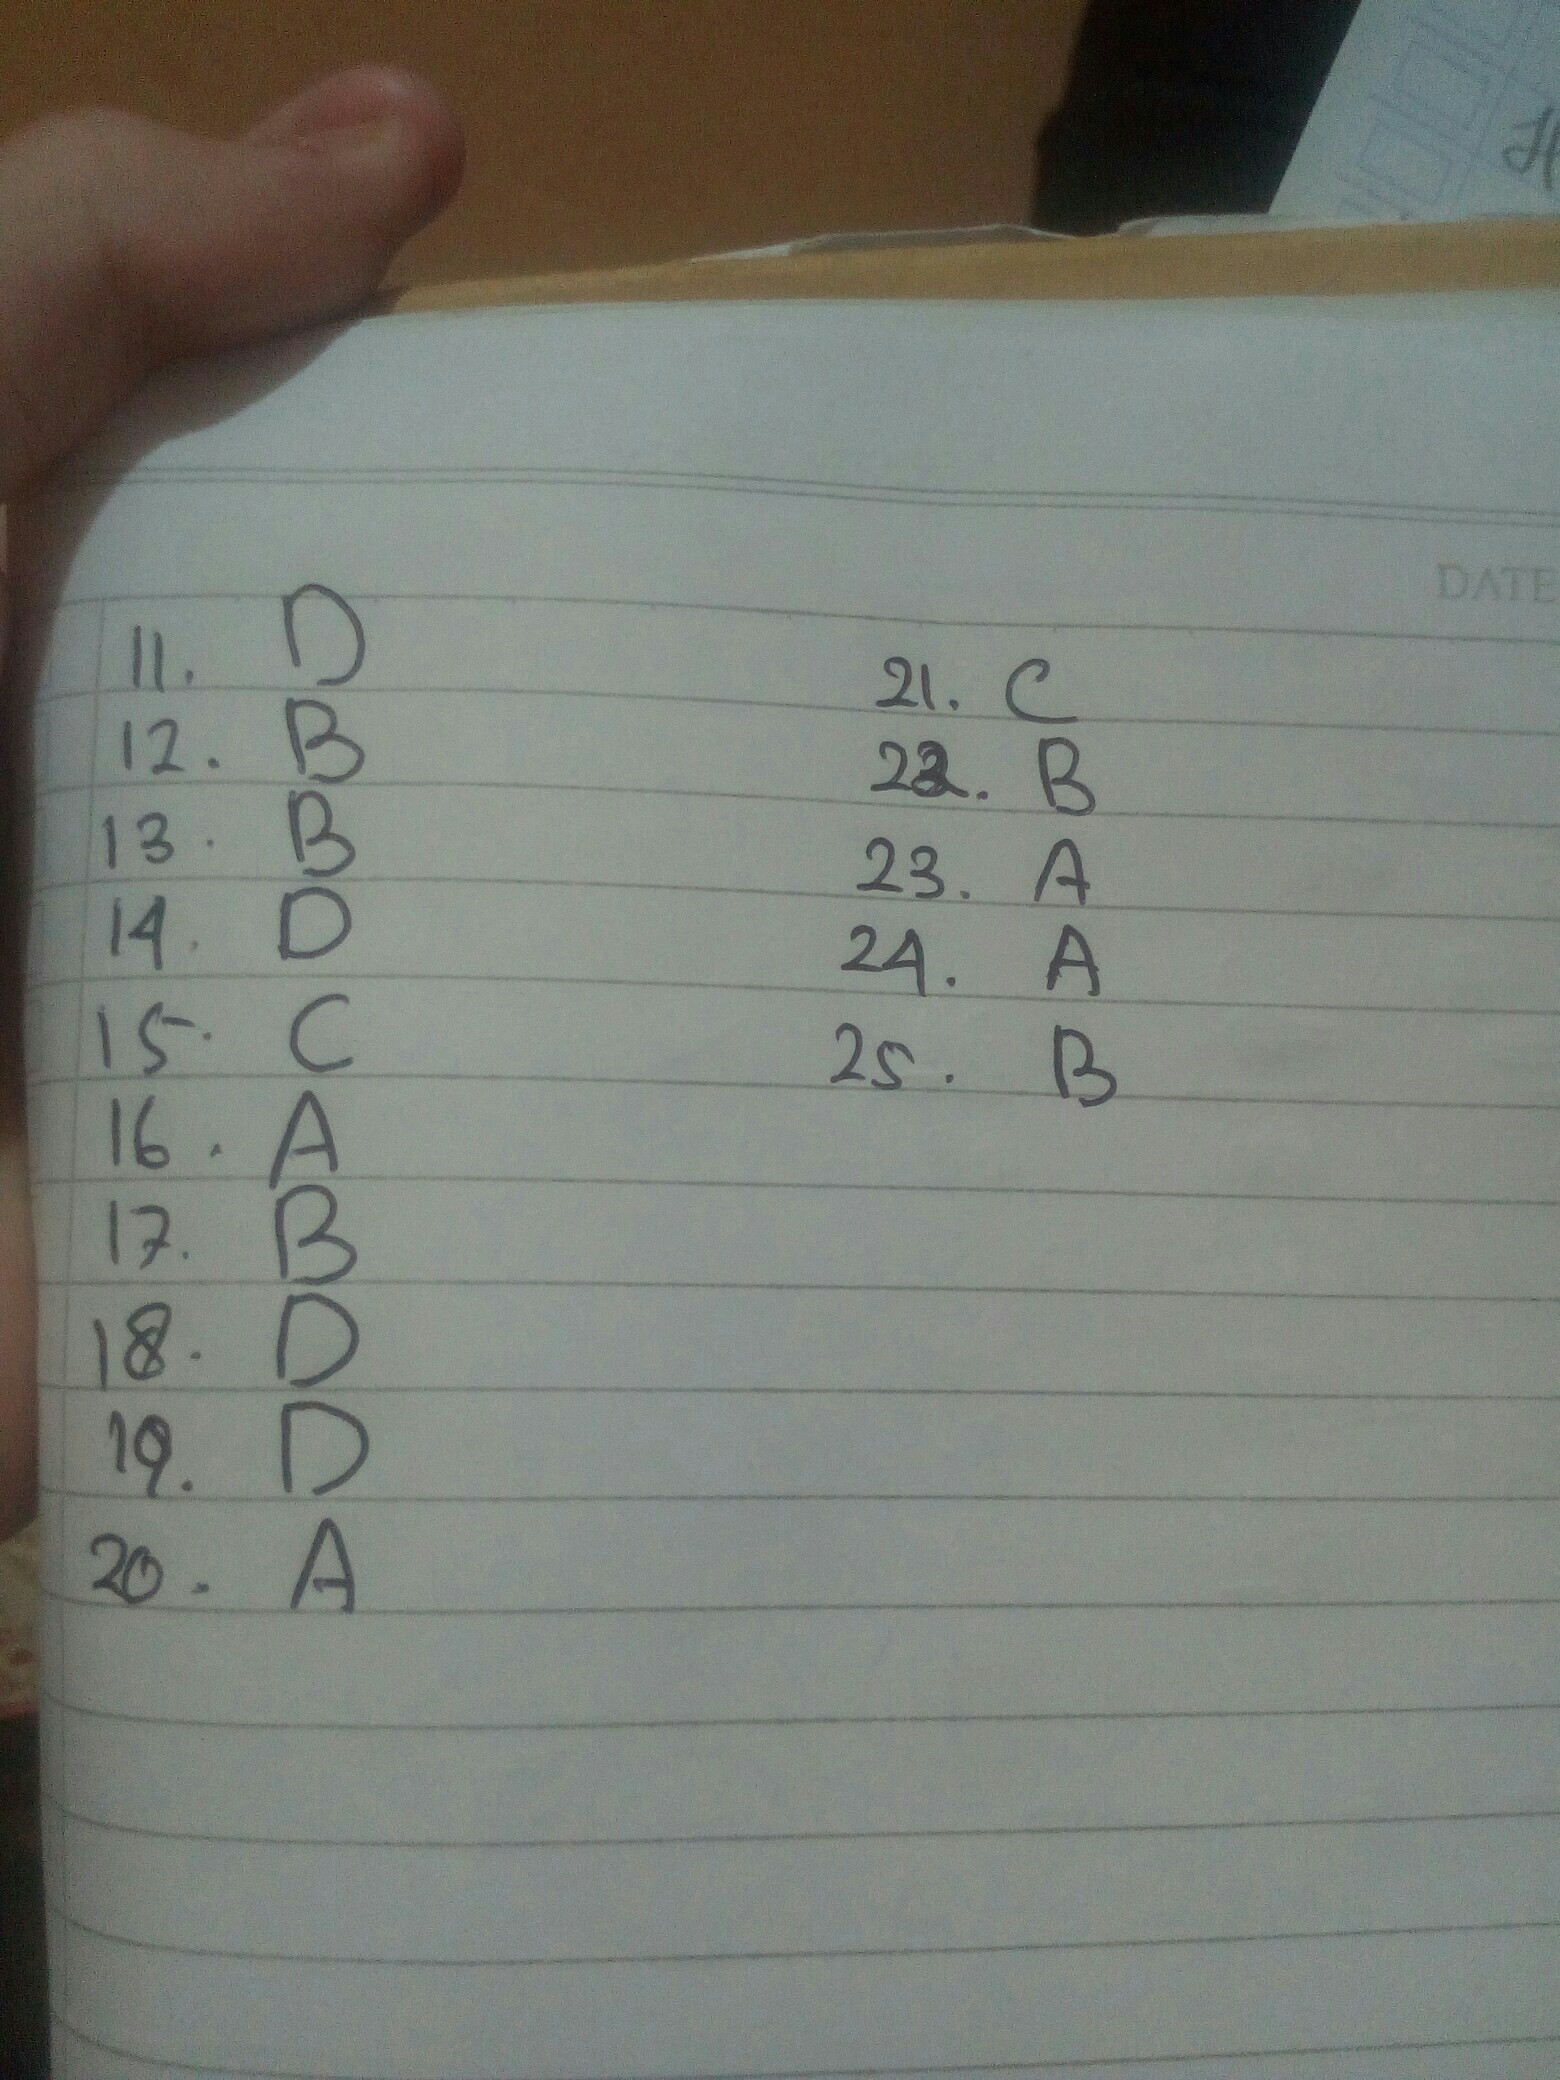 DATE
11. D
12. B
13. B
14. D
15. C
16. A
17. B
18. D
19. D
20. A
21. C
22. B
23. A
24. A
25. B